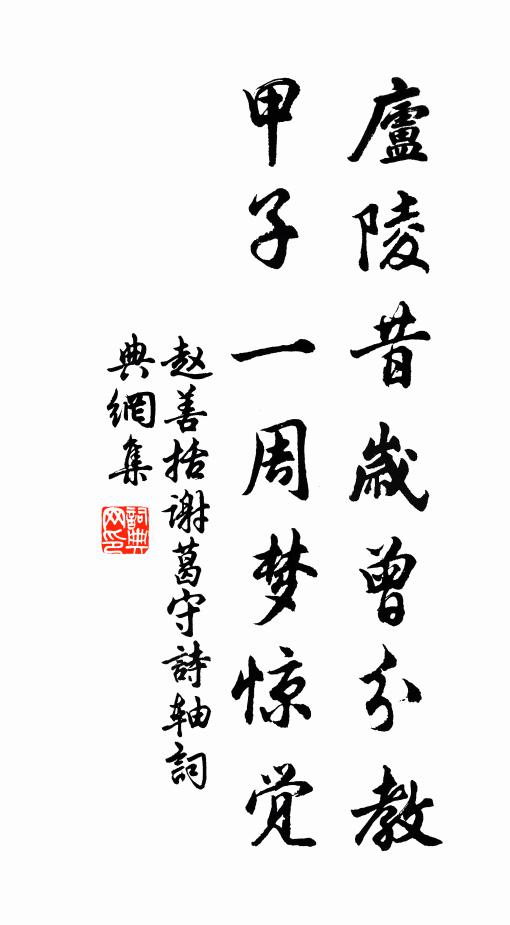 廬陵昔歲曾分教
甲子一周梦惊觉
赵善括谢葛守詩轴詞
典網集
詞典
网印